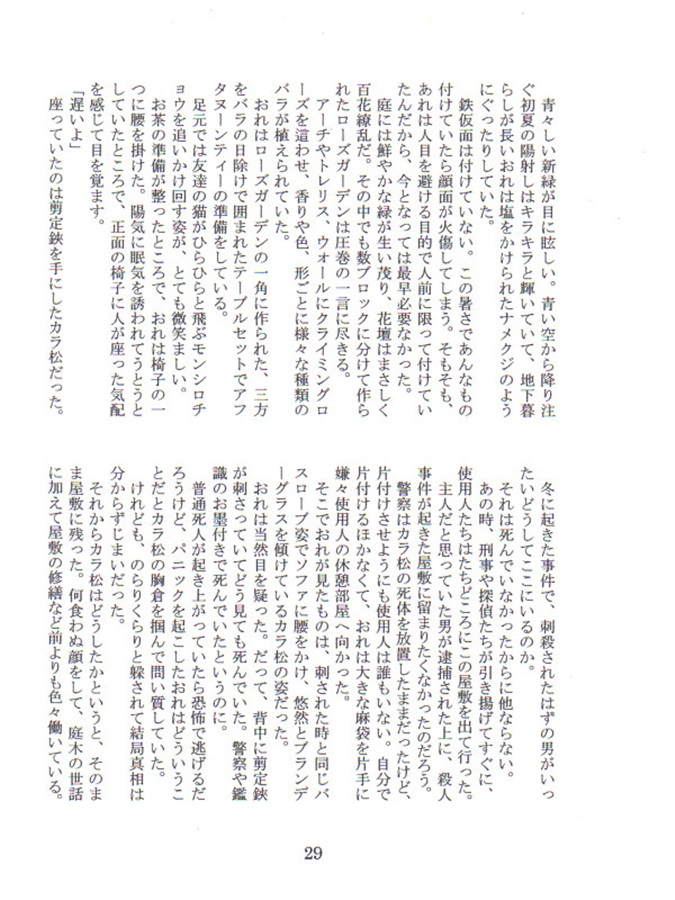 青々しい新緑が目に眩しい。青い空から降り注
ぐ初夏の陽射しはキラキラと輝いていて、地下暮
らしが長いおれは塩をかけられたナメクジのよう
にぐったりしていた。
鉄仮面は付けていない。この暑さであんなもの
付けていたら顔面が火傷してしまう。そもそも、
あれは人目を避ける目的で人前に限って付けてい
たんだから、今となっては最早必要なかった。
庭には鮮やかな緑が生い茂り、花壇はまさしく
百花繚乱だ。その中でも数ブロックに分けて作ら
れたローズガーデンは圧巻の一言に尽きる。
アーチやトレリス、ウォールにクライミングロ
ーズを這わせ、香りや色、形ごとに様々な種類の
バラが植えられていた。
おれはローズガーデンの一角に作られた、三方
をバラの日除けで囲まれたテーブルセットでアフ
タヌーンティーの準備をしている。
足元では友達の猫がひらひらと飛ぶモンシロチ
ョウを追いかけ回す姿が、とても微笑ましい。
お茶の準備が整ったところで、おれは椅子の一
つに腰を掛けた。陽気に眠気を誘われてうとうと
していたところで、正面の椅子に人が座った気配
を感じて目を覚ます。
「遅いよ」
座っていたのは剪定鋏を手にしたカラ松だった。
冬に起きた事件で、刺殺されたはずの男がいっ
たいどうしてここにいるのか。
それは死んでいなかったからに他ならない。
あの時、刑事や探偵たちが引き揚げてすぐに、
使用人たちはたちどころにこの屋敷を出て行った。
主人だと思っていた男が逮捕された上に、殺人
事件が起きた屋敷に留まりたくなかったのだろう。
警察はカラ松の死体を放置したままだったけど、
片付けさせようにも使用人は誰もいない。自分で
片付けるほかなくて、おれは大きな麻袋を片手に
嫌々使用人の休憩部屋へ向かった。
そこでおれが見たものは、刺された時と同じバ
スローブ姿でソファに腰をかけ、悠然とブランデ
ーグラスを傾けているカラ松の姿だった。
おれは当然目を疑った。だって、背中に剪定鋏
が刺さっていてどう見ても死んでいた。警察や鑑
識のお墨付きで死んでいたというのに。
普通死人が起き上がっていたら恐怖で逃げるだ
ろうけど、パニックを起こしたおれはどういうこ
とだとカラ松の胸倉を掴んで問い質していた。
けれども、のらりくらりと躱されて結局真相は
分からずじまいだった。
それからカラ松はどうしたかというと、そのま
ま屋敷に残った。何食わぬ顔をして、庭木の世話
に加えて屋敷の修繕など前よりも色々働いている。
29